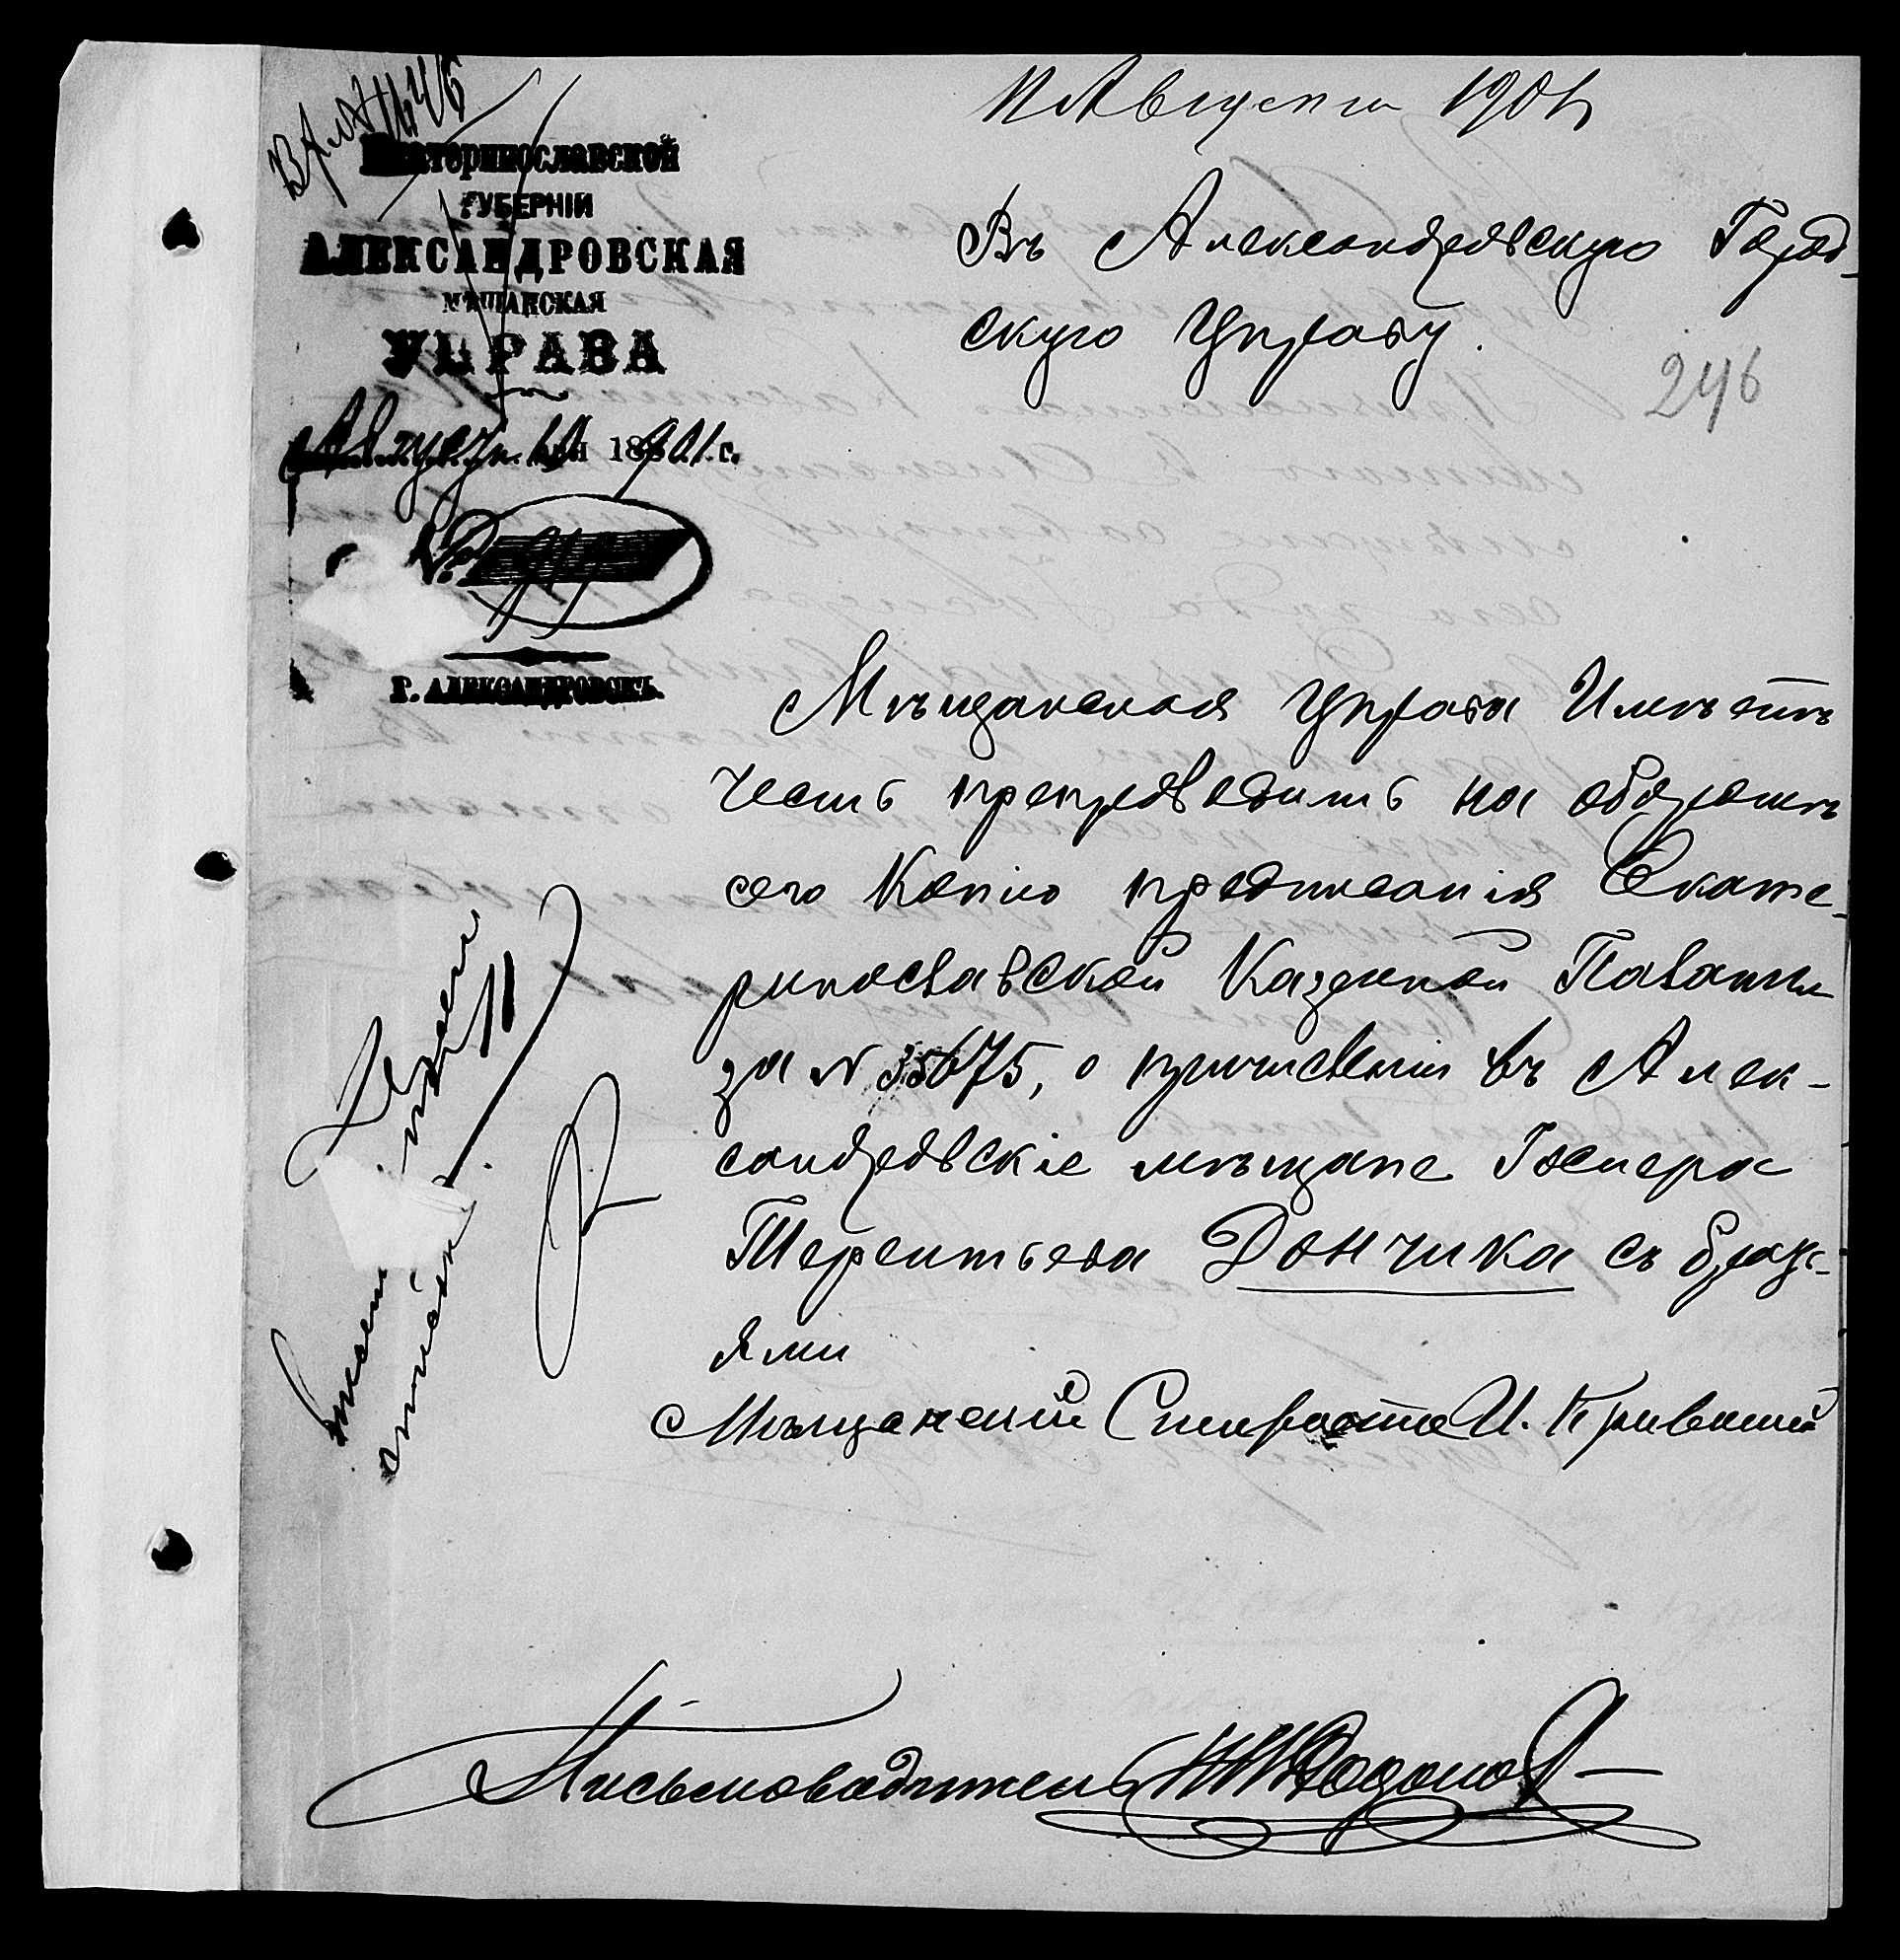 11 Августа 1901
Екатеринославской
ГУБЕРНІИ
АЛЕКСАНДРОВСКАЯ
МѢЩАНСКАЯ
УПРАВА
Августа 10 дня 1901 г.
№
Г. АЛЕКСАНДРОВСКЪ.
Въ Александровскую Город-
скую Управу.
246
Мѣщанская Управа Имѣетъ
честь препроводить на оборотѣ
сего Копію предписанія Екате-
ринославской Казенной Палаты
за № 35675, о причисленіи въ Алек-
сандровскіе мѣщане
Терентьева Дончика съ брать-
ями
Мѣщанскій Староста И.
Письмоводитель